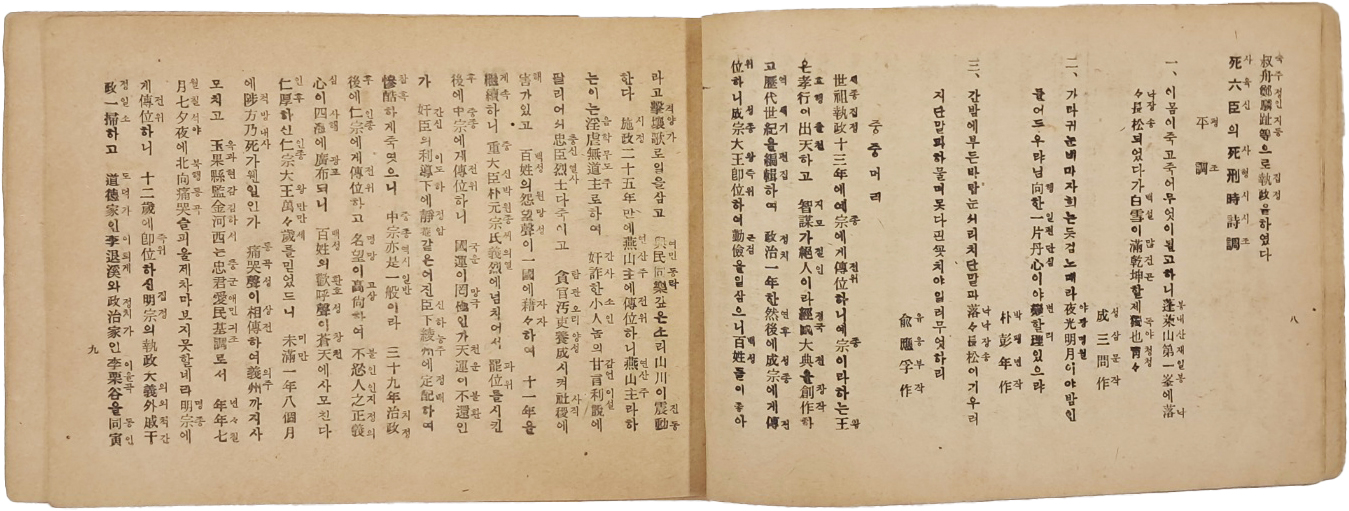 叔舟鄭麟趾等으로執政을하였다
死六臣의死刑時詩調
平調
一、이몸이죽고죽어무엇이될고하니蓬萊山第一峯에落
々長松되였다가白雪이滿乾坤할제獨也靑々
成三問作
二、가마귀눈비마자희는듯검노매라夜光明月이야밤인
들어두우랴님向한一片丹心이야變할理있으랴
朴彭年作
三、간밤에부든바람눈쇠리치단말가落々長松이기우러
지단말까하물며못다핀꽃치야일러무엇하리
兪應孚作
중중머리
世祖執政十三年에예宗에게傳位하니예宗이라하는王
은孝行이出天하고 智謀가絕人이라經國大典을創作하
고歷代世紀을編輯하여 政治一年한然後에成宗에게傳
位하니成宗大王卽位하여勤儉을일삼으니百姓들이좋아
八
라고擊壤歌로일을삼고 與民同樂깊은소리山川이震動
한다 施政二十五年만에燕山主에傳位하니燕山主라하
는이는淫虐無道主로하여 奸詐한小人놈의甘言利說에
팔리어서忠臣烈士다죽이고 貪官汚吏養成시켜社稷에
害가있고 百姓의怨望聲이一國에藉々하여 十一年을
繼續하니重大臣朴元宗氏義烈에넘치어서 罷位를시킨
後에中宗에게傳位하니 國運이罔極인가天運이不還인
가 奸臣의利導下에靜菴같은어진臣下綾州에定配하여
慘酷하게죽엿으니 中宗亦是一般이라 三十九年治政
後에仁宗에게傳位하고 名望이高尙하여 不忍人之正義
心이四海에廣布되니 百姓의歡呼聲이蒼天에사모친다
仁厚하신仁宗大王萬々歲를믿었드니 未滿一年八個月
에陟方乃死가웬일인가 痛哭聲이相傳하여義州까지사
모치고 玉果縣監金河西는忠君愛民基調로서 年年七
月七夕夜에北向痛哭슬피울제차마보지못할네라明宗에
게傳位하니 十二歲에卽位하신明宗의執政大義外戚干
政一掃하고 道德家인李退溪와政治家인李栗谷을同寅
九